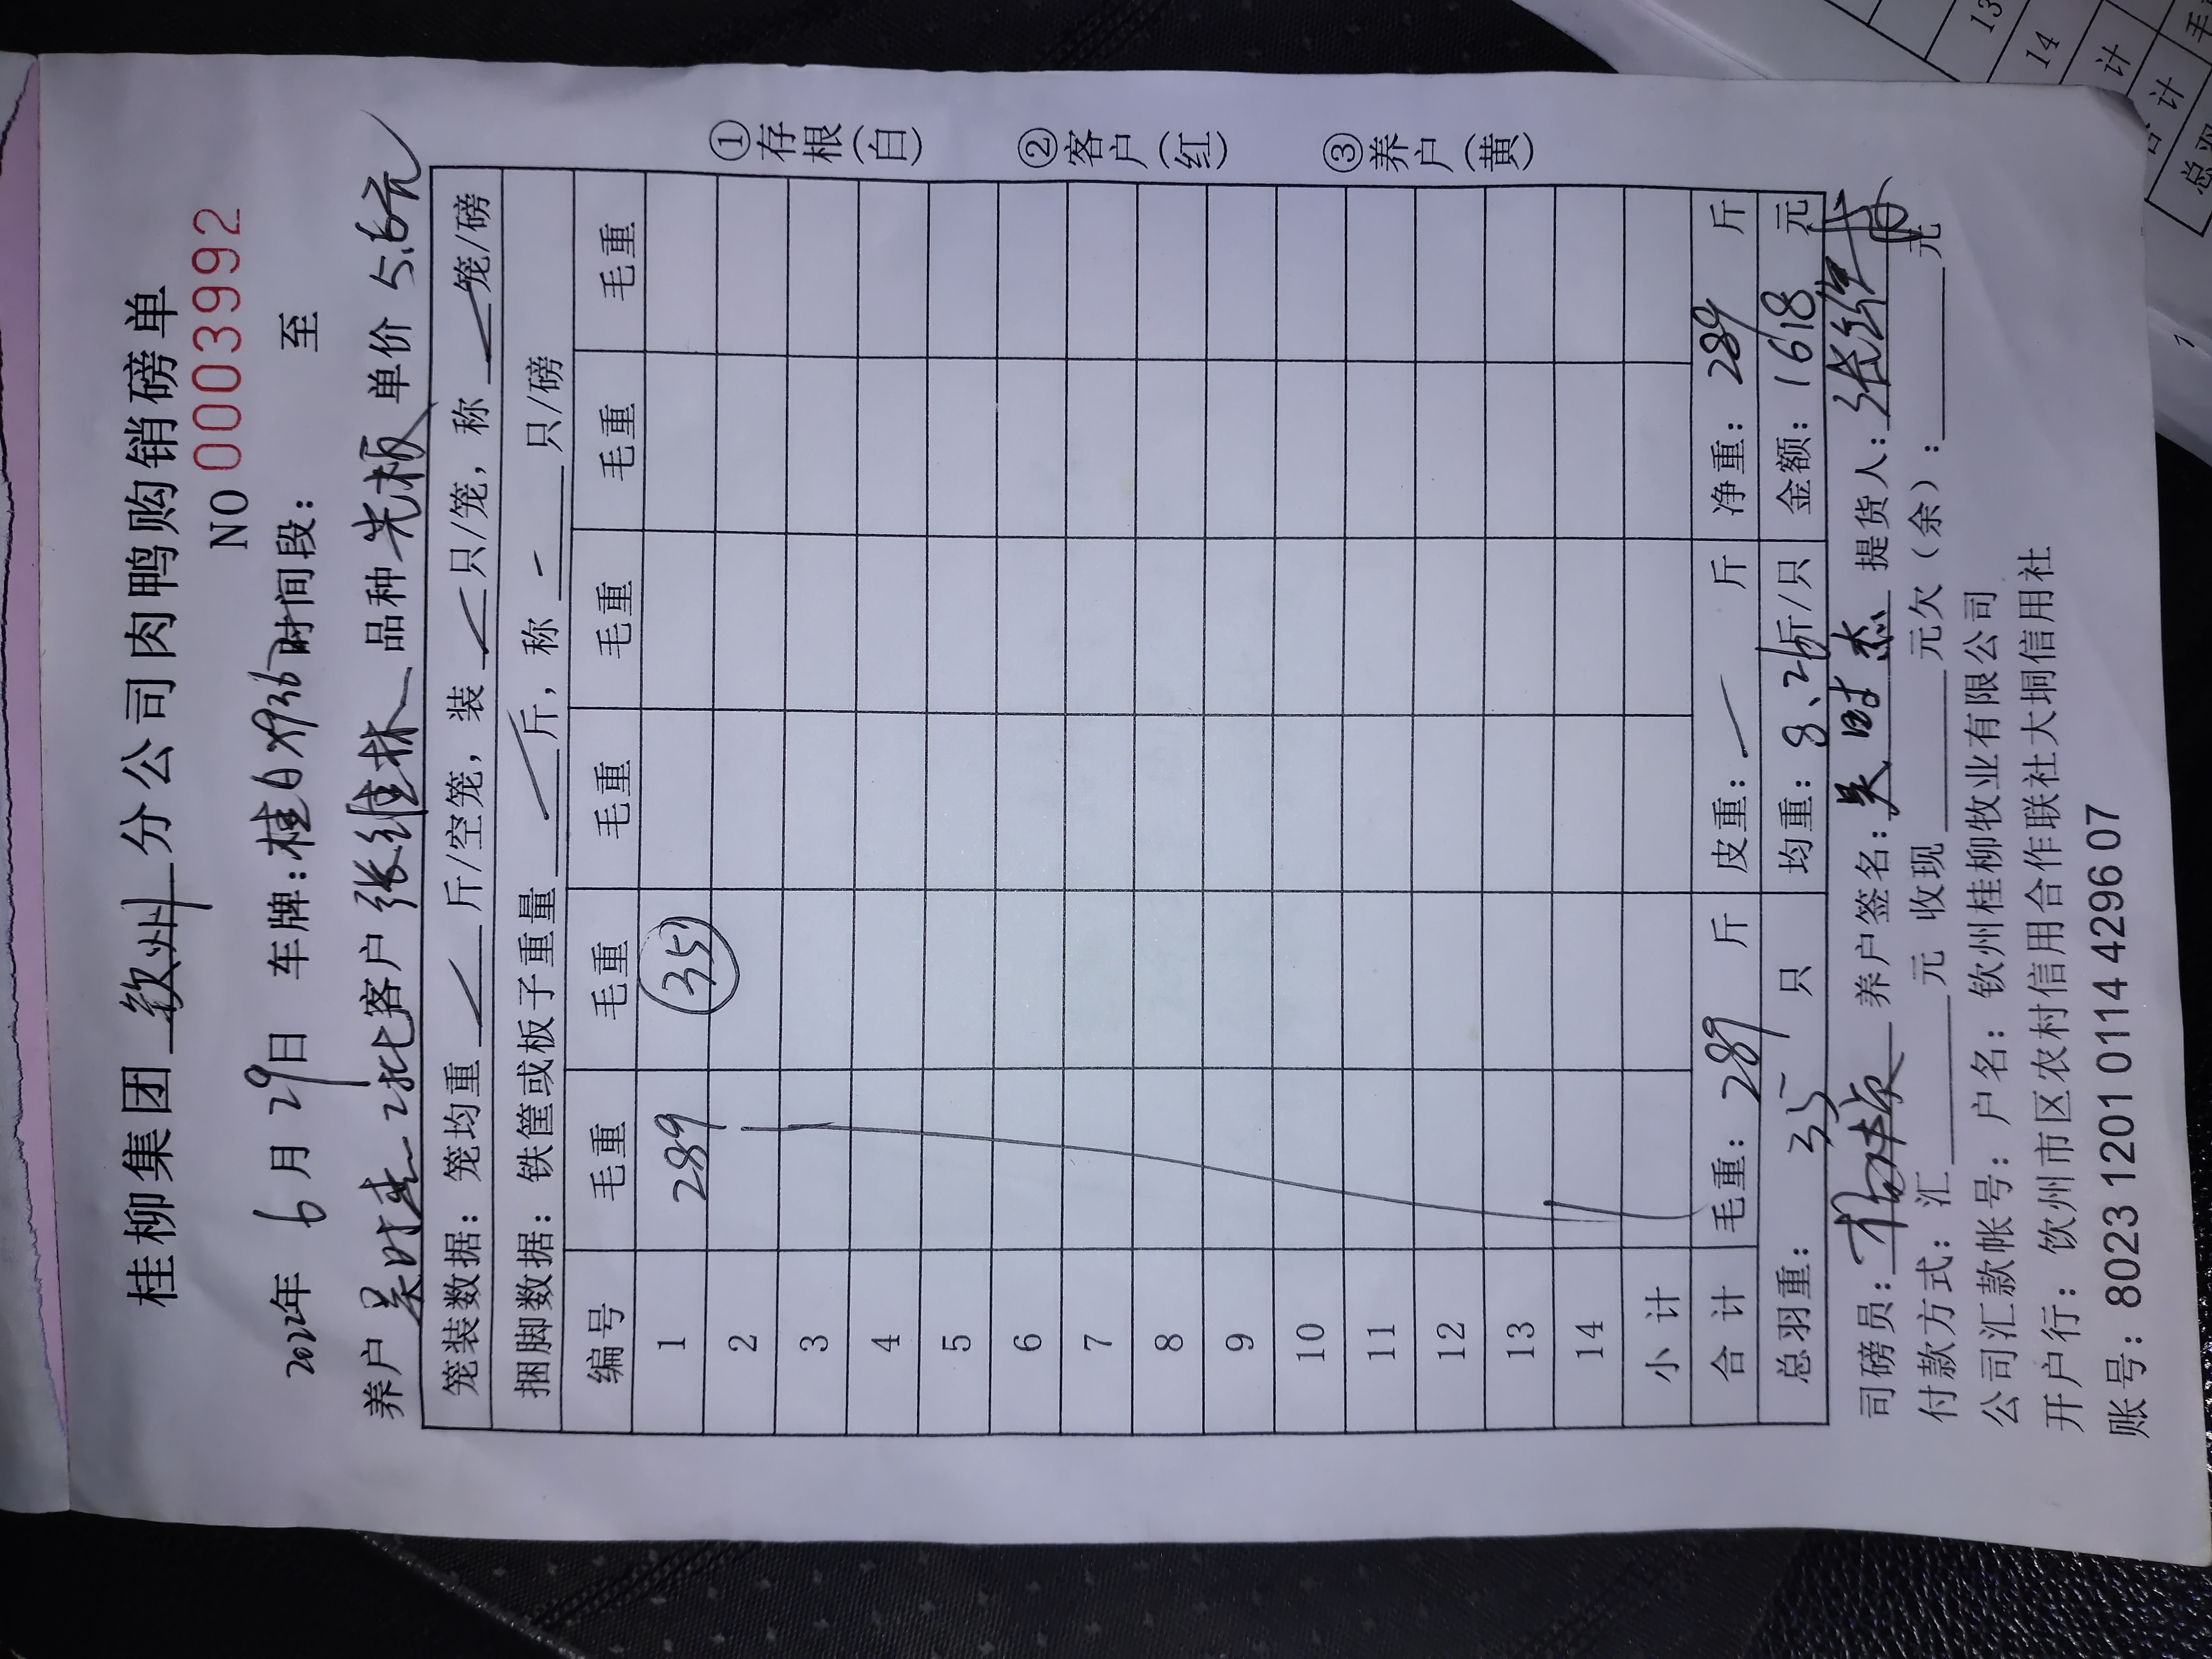 桂柳集团 钦州 分公司肉鸭购销磅单
NO 0003992
2022年 6月29日 车牌: 时间段: 至
养户 吴时杰 2批 客户 张维林 品种 光板 单价 5.6元
笼装数据：笼均重 斤/空笼，装 只/笼，称 笼/磅
捆脚数据：铁筐或板子重量 斤，称 - 只/磅
编号 毛重 毛重 毛重 毛重 毛重 毛重
1 289 35
2
3
4
5
6
7
8
9
10
11
12
13
14
小计
合计 毛重：289 斤 皮重： 斤 净重：289 斤
总羽重： 35 只 均重：8.26斤/只 金额：1618 元
司磅员： 养户签名：吴时杰 提货人：张维
付款方式：汇 元 收现 元欠（余）： 元
公司汇款帐号：户名：钦州桂柳牧业有限公司
开户行：钦州市区农村信用合作联社大垌信用社
账号：8023 1201 0114 4296 07
①存根(白)
②客户(红)
③养户(黄)
13
14
计
合计